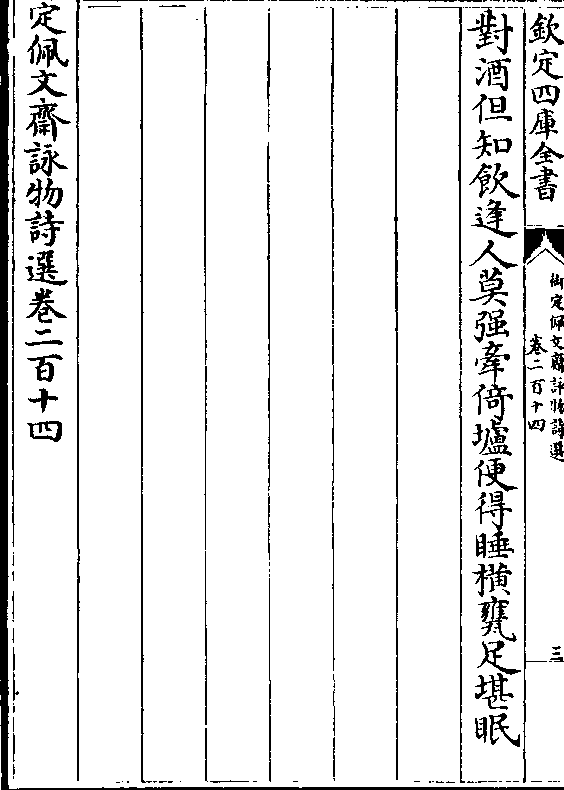 欽定四庫全書
御定佩文齋詠物詩選
卷二百十四
三
對酒但知飲逢人莫强牽倚壚便得睡橫甕足堪眠
定佩文齋詠物詩選卷二百十四